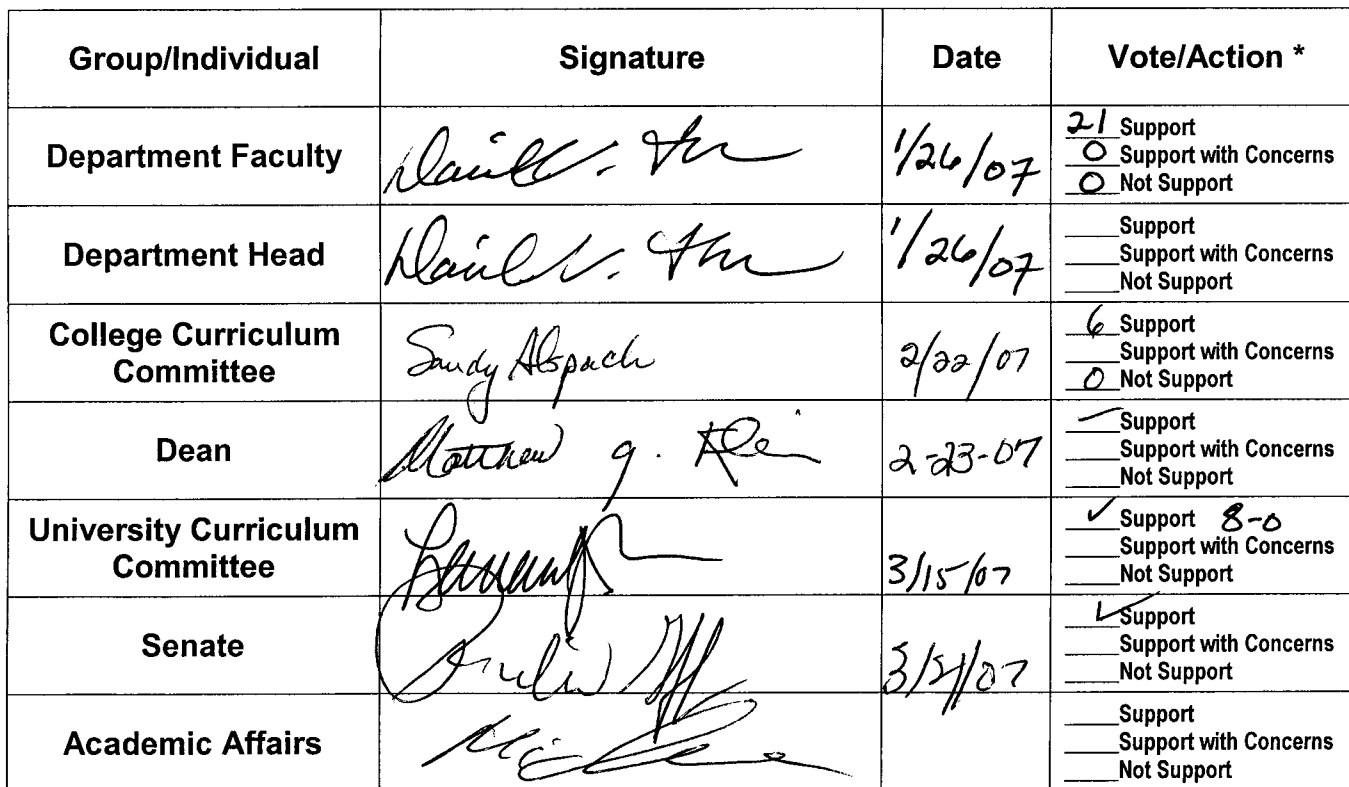 Group/Individual Signature Date Vote/Action *
Department Faculty 1/26/07 21 Support
0 Support with Concerns
0 Not Support
Department Head 1/26/07 ____Support
____Support with Concerns
____Not Support
College Curriculum
Committee Sandy Alspach 2/22/07 6 Support
____Support with Concerns
0 Not Support
Dean Matthew g. Klein 2-23-07 ✓ Support
____Support with Concerns
____Not Support
University Curriculum
Committee 3/15/07 ✓ Support 8-0
____Support with Concerns
____Not Support
Senate ✓ Support
____Support with Concerns
____Not Support
Academic Affairs ____Support
____Support with Concerns
____Not Support